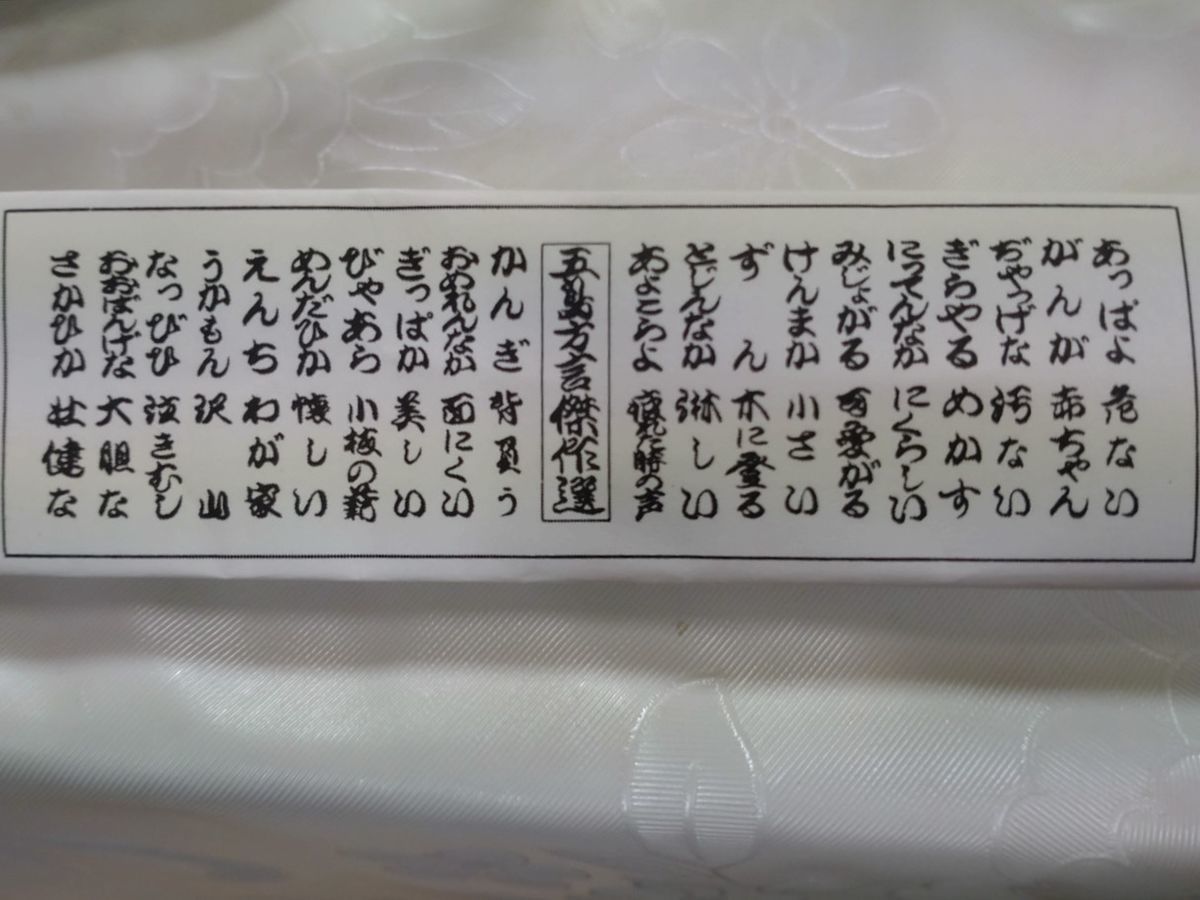 あっぱよ 危ない
がんがが 赤ちゃん
ぢゃっげな 汚ない
ぎらやる めかす
にってんなか にくらしい
みじょがる 可愛がる
けんまか 小さい
ずん 木に登る
とじんなか 淋しい
あよこらよ 疲れた時の声
五島方言傑作選
かんぎ 背負う
おめれんなか 面にくい
ぎっぱか 美しい
びゃあら 小枝の薪
めんだひか 懐しい
えんち わが家
うかもん 沢山
なっびひ 泣きむし
おおばんげな 大胆な
さかひか 壮健な